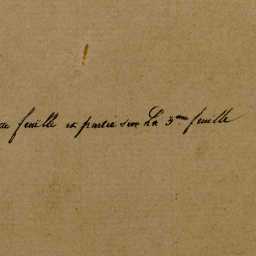 de feuille et partie sur la 3me feuille